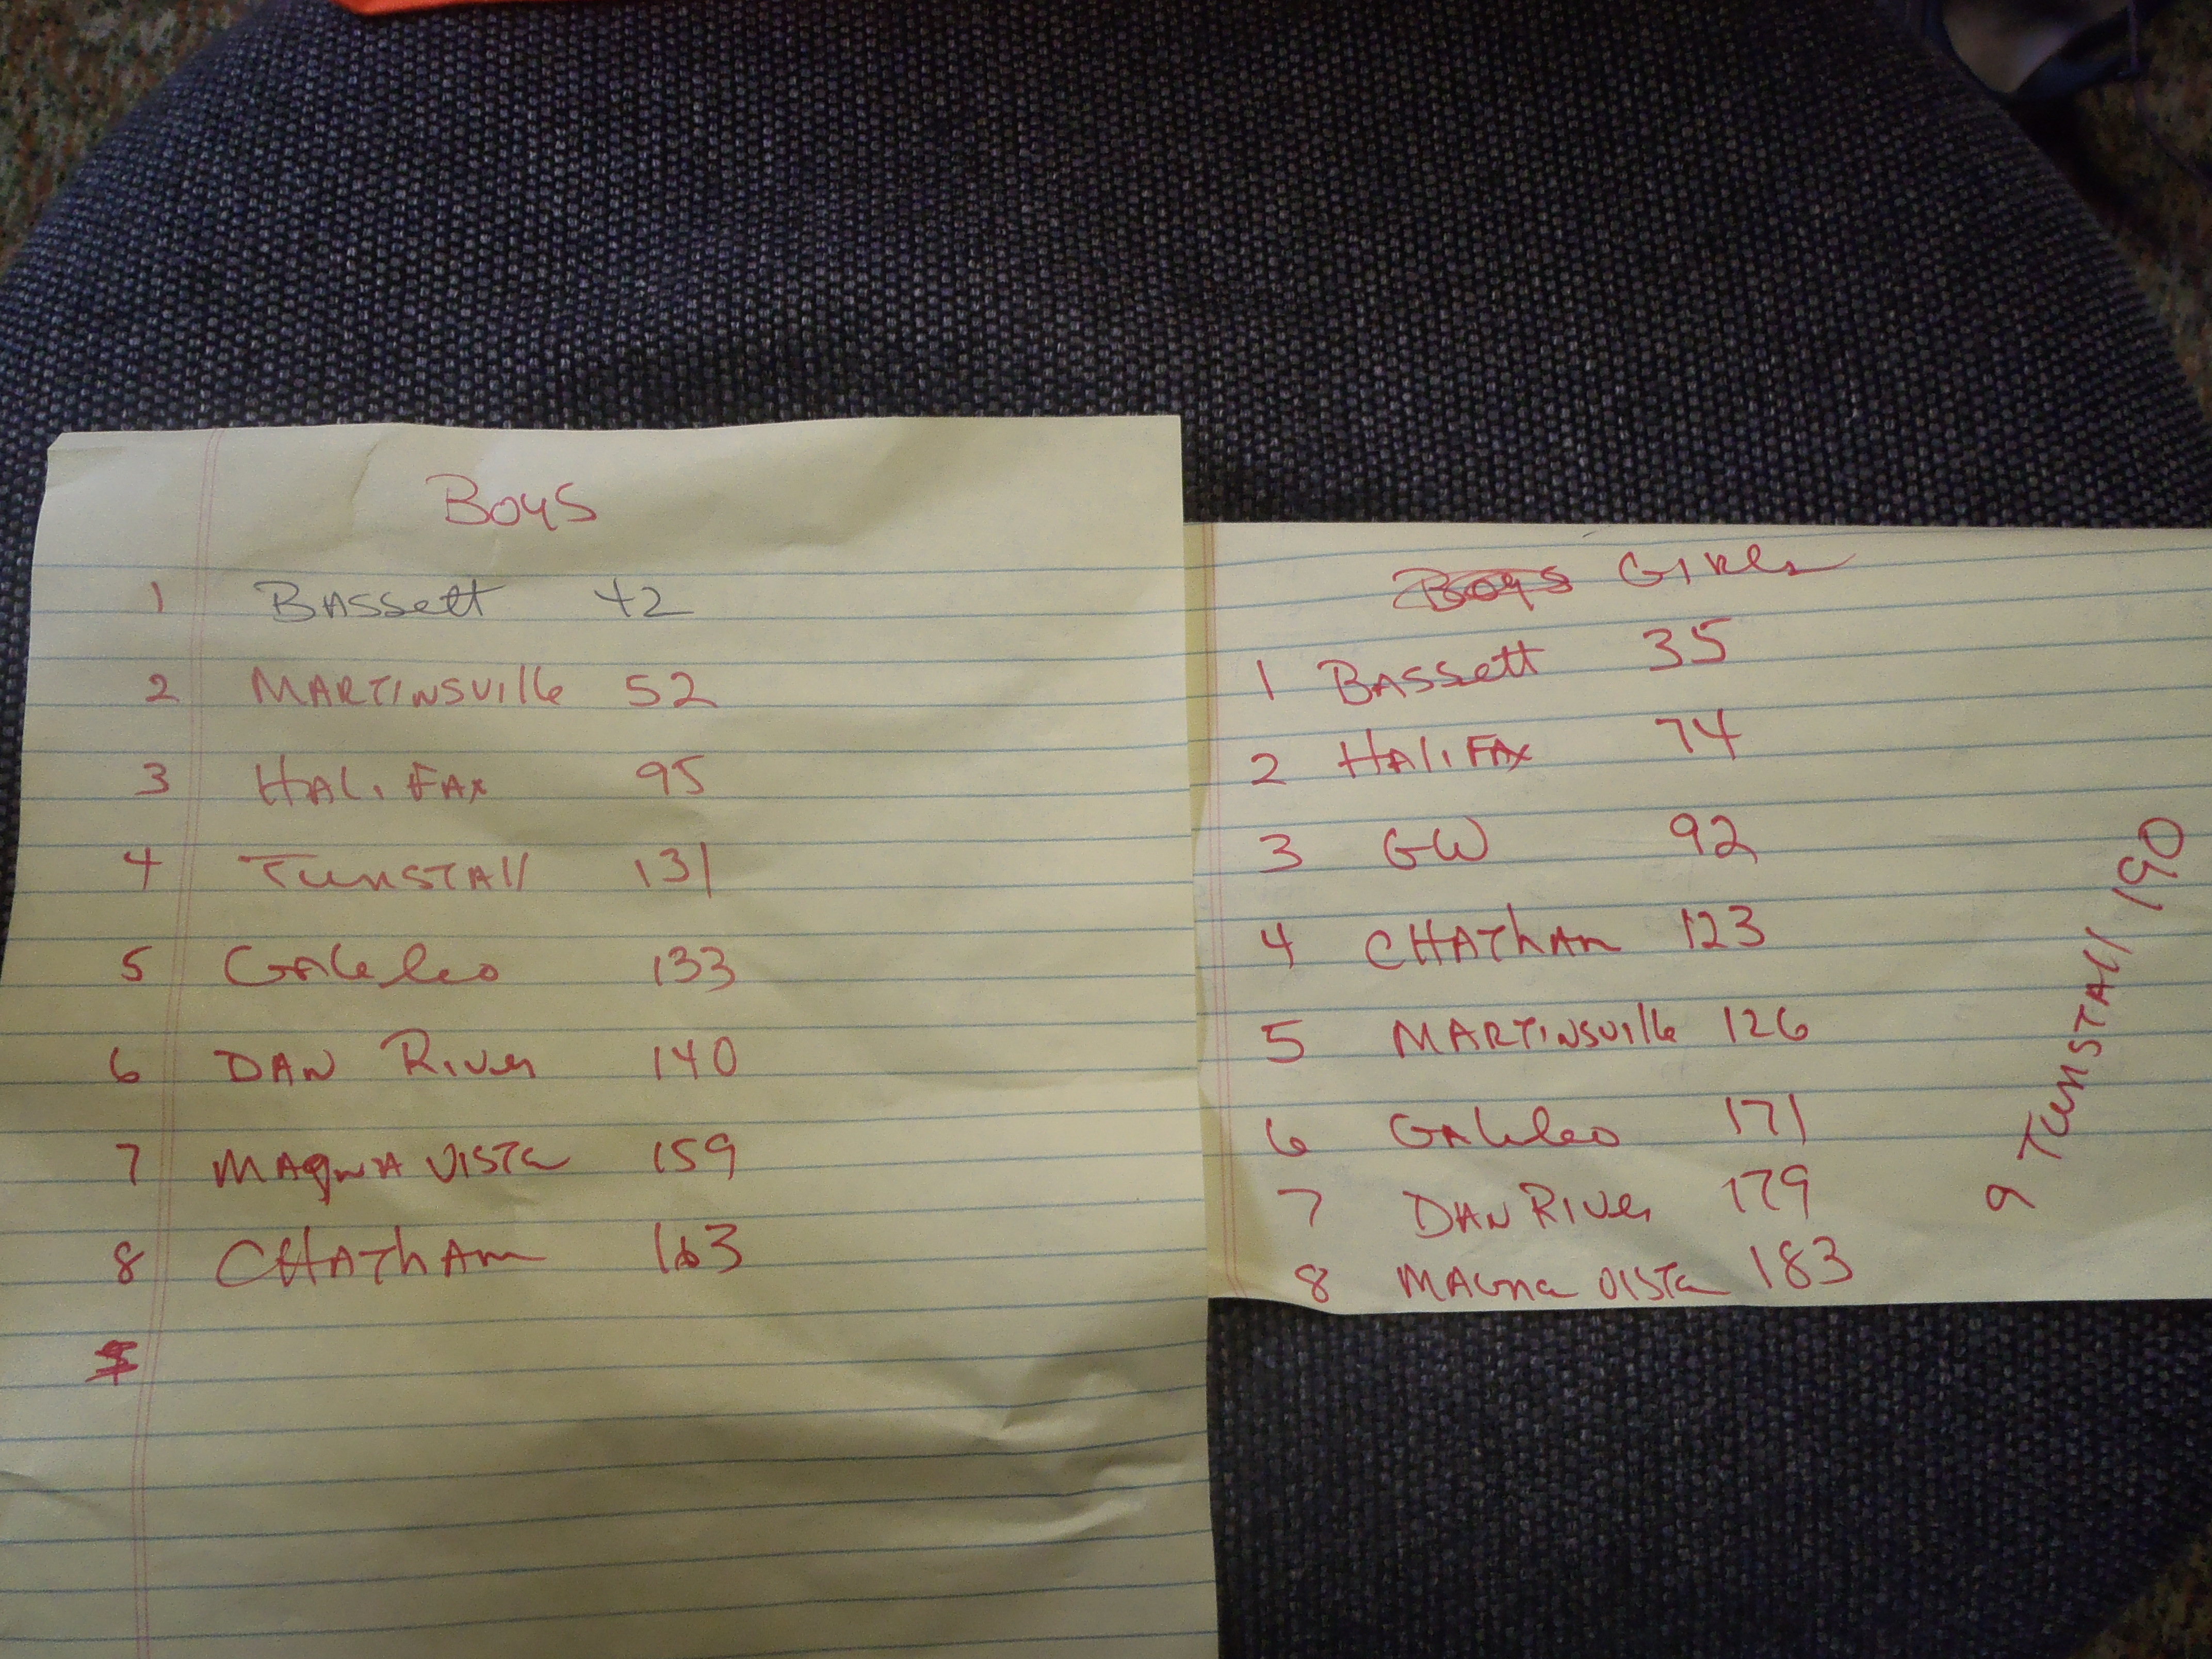 Boys
1 BASSett 42
2 MARTINSVille 52
3 HALiFAx 95
4 TunSTAll 131
5 GALileo 133
6 DAN River 140
7 MAgNA VISTa 159
8 CHAThAm 163
Boys GIRls
1 BASSett 35
2 HAliFAx 74
3 GW 92
4 CHAThAm 123
5 MARTINSVille 126
6 GAlileo 171
7 DAN RIVer 179
8 MAGna VISTa 183
9 TunSTAll 190